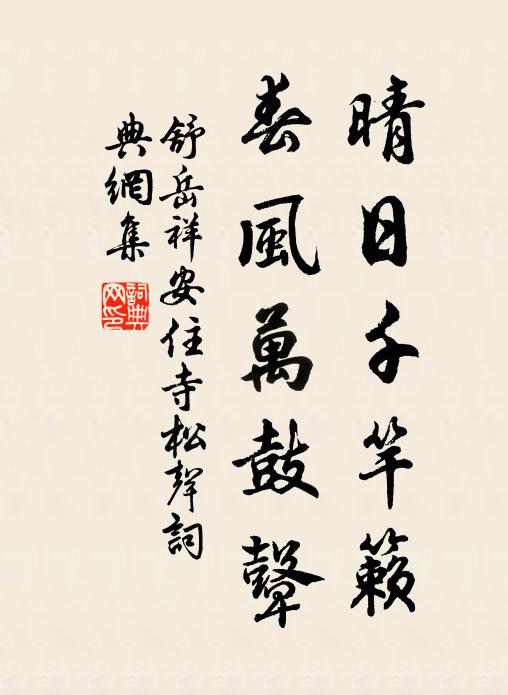 晴日千竿籟
春風萬鼓鼙
舒岳祥安住寺松聲詞
典網集
詞典
网印